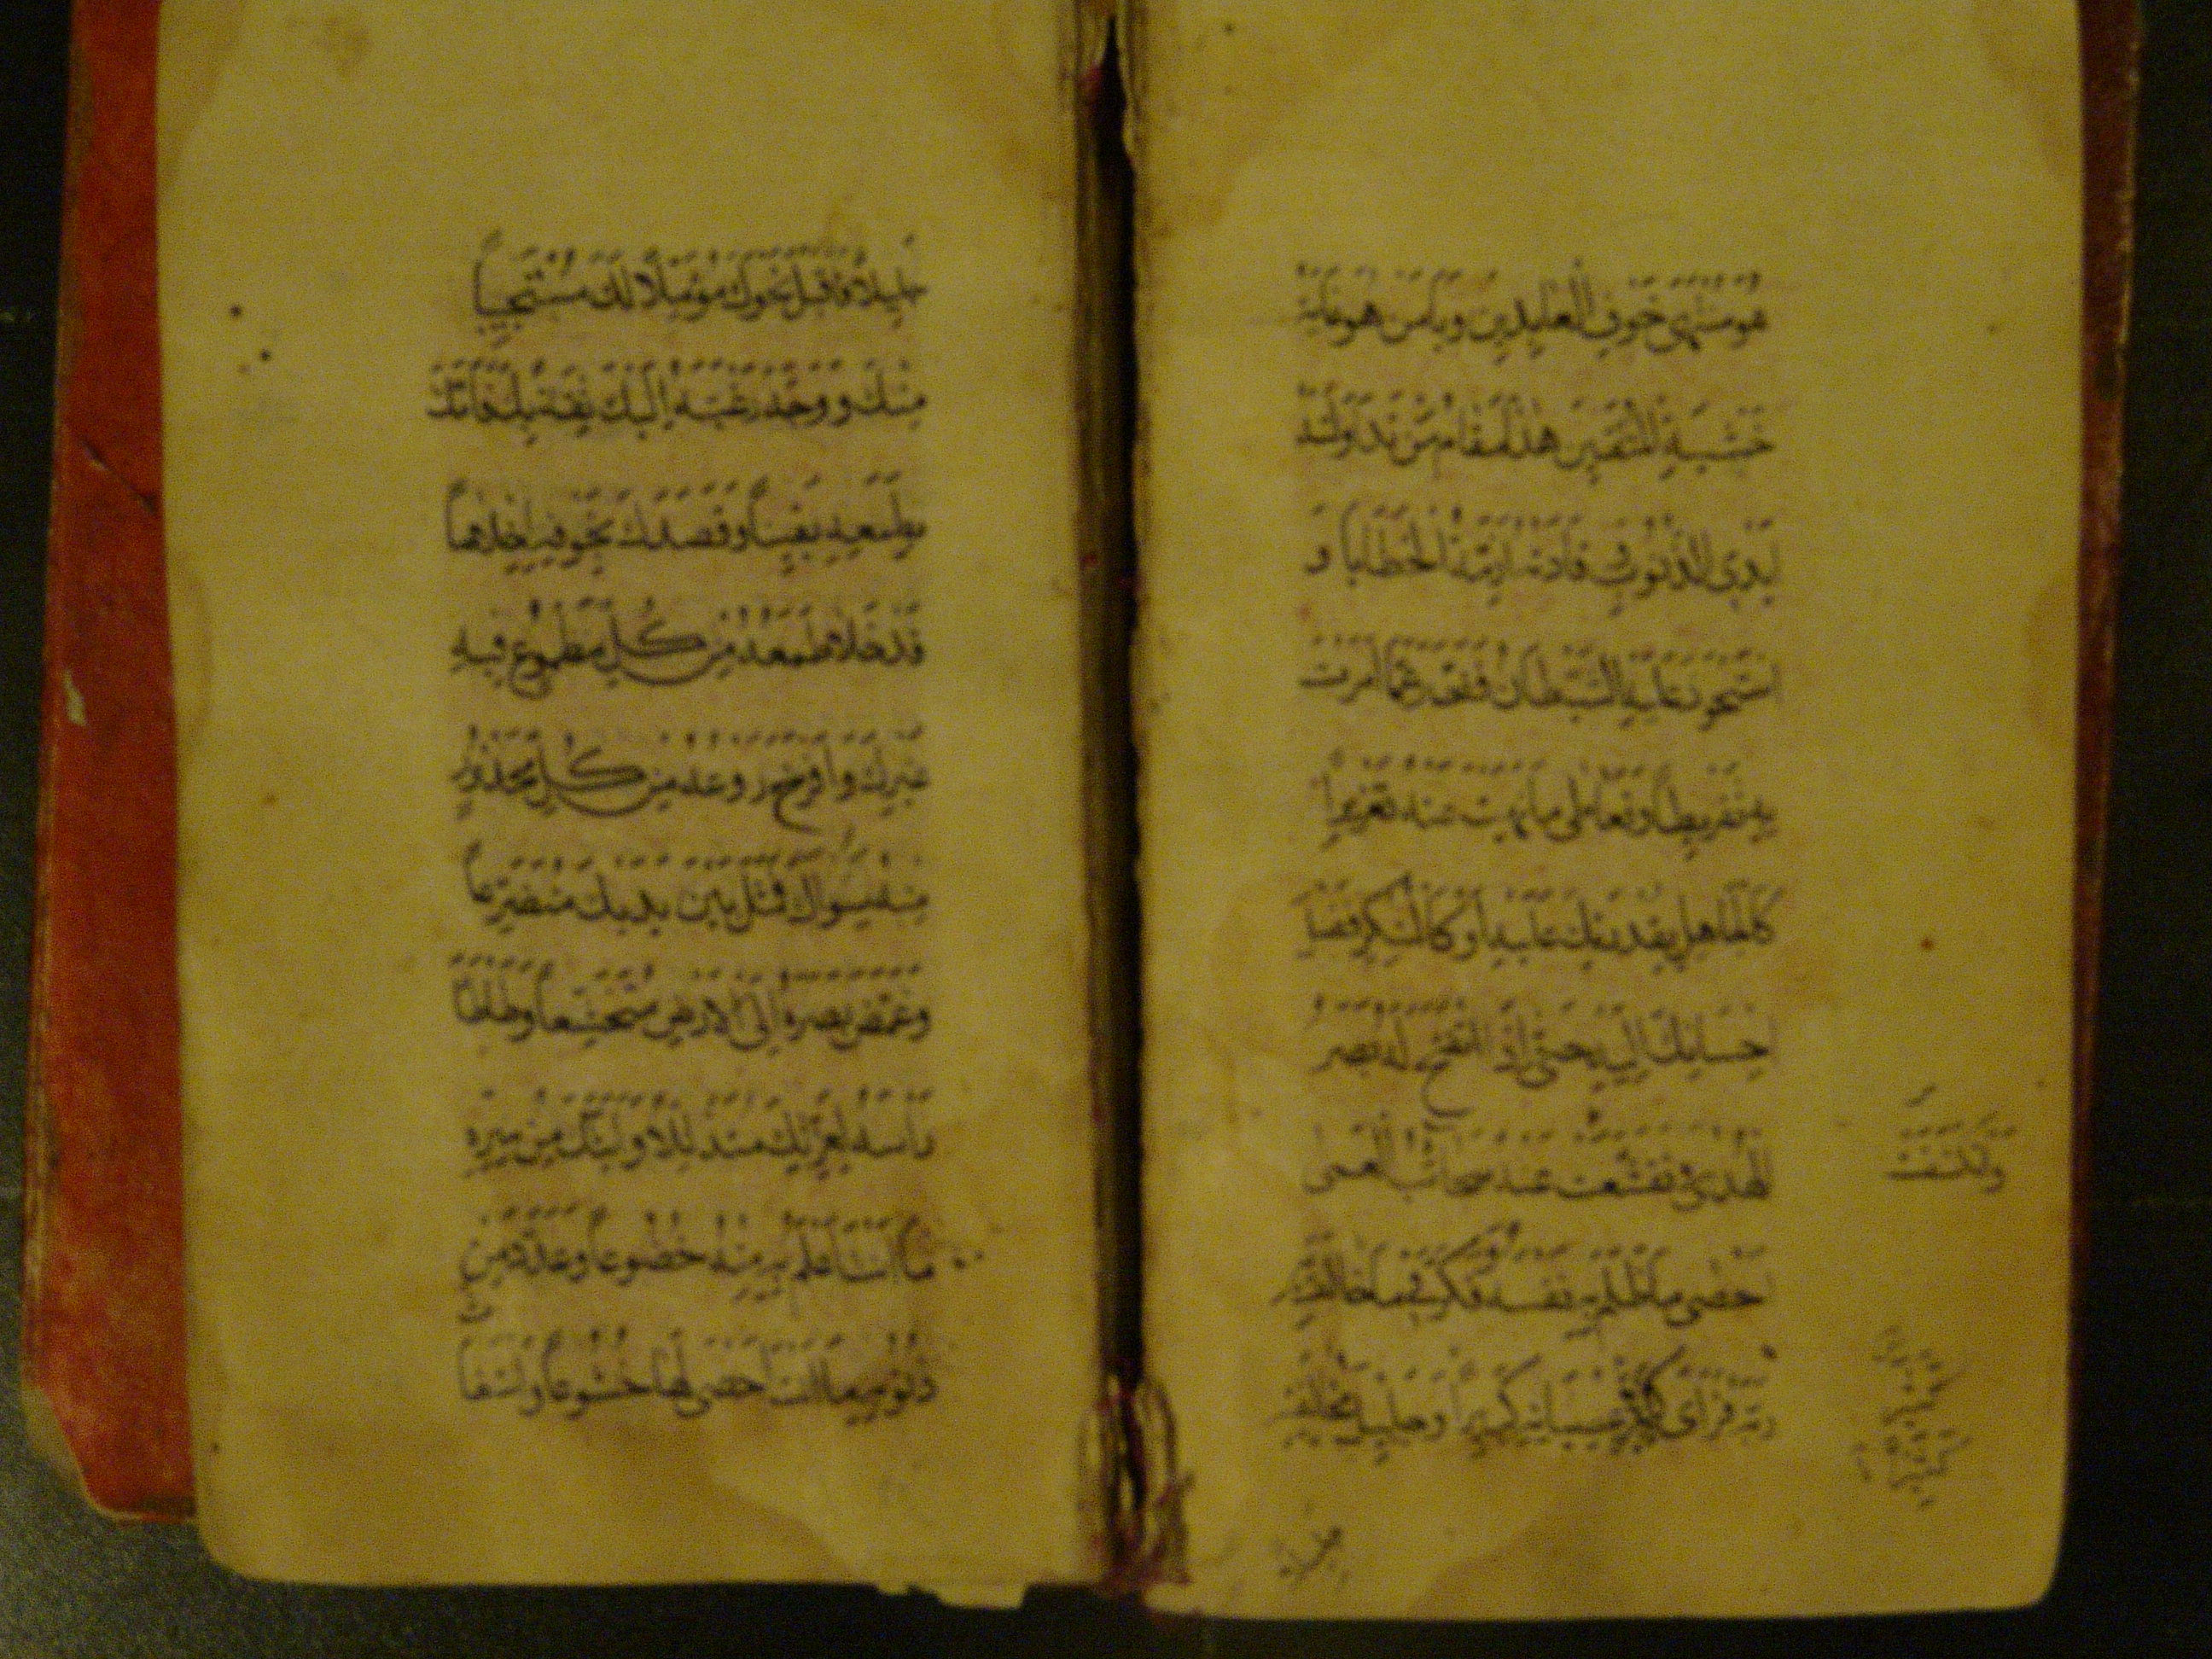 هُوَ مُنْتَهَى خَوْفِ الْعَابِدِينَ وَيَا مَنْ هُوَ غَايَةُ
خَشْيَةِ الْمُتَّقِينَ هَذَا مَقَامُ مَنْ تَدَاوَلَتْهُ
أَيْدِي الذُّنُوبِ وَقَادَتْهُ أَزِمَّةُ الْخَطَايَا وَ
اسْتَحْوَذَ عَلَيْهِ الشَّيْطَانُ فَقَصَّرَ عَمَّا أَمَرْتَ
بِهِ تَفْرِيطًا وَتَعَاطَى مَا نَهَيْتَ عَنْهُ تَغْرِيرًا
كَالْجَاهِلِ بِقُدْرَتِكَ عَلَيْهِ أَوْ كَالْمُنْكِرِ فَضْلَ
إِحْسَانِكَ إِلَيْهِ حَتَّى إِذَا انْفَتَحَ لَهُ بَصَرُ
الْهُدَى وَتَقَشَّعَتْ عَنْهُ سَحَائِبُ الْعَمَى
أَحْصَى مَا ظَلَمَ بِهِ نَفْسَهُ وَفَكَّرَ فِيمَا خَالَفَ بِهِ
رَبَّهُ فَرَأَى كَبِيرَ عِصْيَانِهِ كَبِيرًا وَجَلِيلَ مُخَالَفَتِهِ
جَلِيلًا فَأَقْبَلَ نَحْوَكَ مُؤَمِّلًا لَكَ مُسْتَحْيِيًا
مِنْكَ وَوَجَّهَ رَغْبَتَهُ إِلَيْكَ ثِقَةً بِكَ فَأَمَّكَ
بِطَمَعِهِ يَقِينًا وَقَصَدَكَ بِخَوْفِهِ إِخْلَاصًا
قَدْ خَلَا طَمَعُهُ مِنْ كُلِّ مَطْمُوعٍ فِيهِ
غَيْرِكَ وَأَفْرَخَ رَوْعُهُ مِنْ كُلِّ مَحْذُورٍ
مِنْهُ سِوَاكَ فَمَثَلَ بَيْنَ يَدَيْكَ مُتَضَرِّعًا
وَغَمَّضَ بَصَرَهُ إِلَى الْأَرْضِ مُتَخَشِّعًا وَطَأْطَأَ
رَأْسَهُ لِعِزَّتِكَ مُتَذَلِّلًا وَأَبَثَّكَ مِنْ سِرِّهِ
مَا أَنْتَ أَعْلَمُ بِهِ مِنْهُ خُضُوعًا وَعَدَّدَ مِنْ
ذُنُوبِهِ مَا أَنْتَ أَحْصَى لَهَا خُشُوعًا وَاسْتَغَا